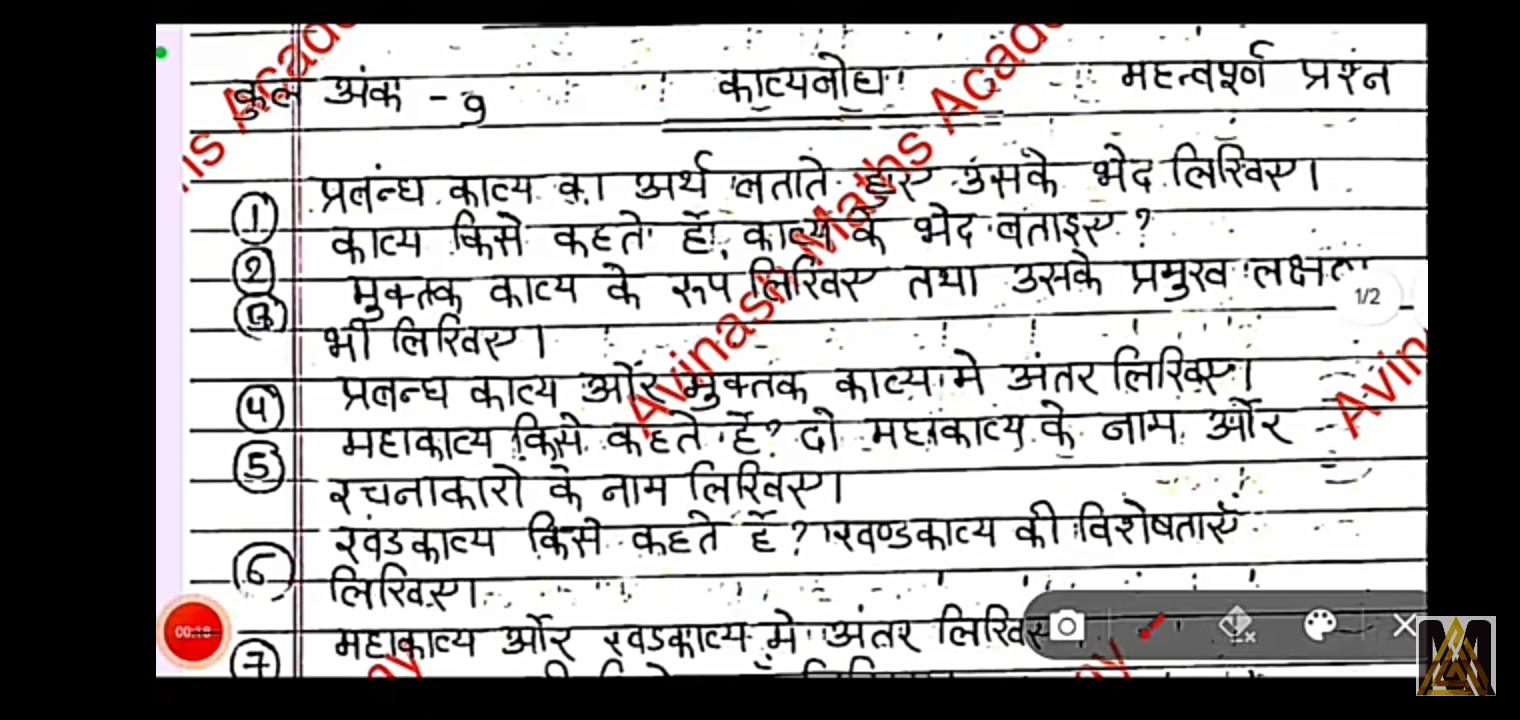 कुल अंक - 9 काव्यबोध महत्वपूर्ण प्रश्न
① प्रबन्ध काव्य का अर्थ बताते हुए उसके भेद लिखिए।
② काव्य किसे कहते हैं, काव्य के भेद बताइए?
③ मुक्तक काव्य के रूप लिखिए तथा उसके प्रमुख
1/2
भी लिखिए।
④ प्रबन्ध काव्य और मुक्तक काव्य मे अंतर लिखिए।
⑤ महाकाव्य किसे कहते हैं? दो महाकाव्य के नाम और
रचनाकारो के नाम लिखिए।
⑥ खंडकाव्य किसे कहते हैं? खण्डकाव्य की विशेषताएँ
लिखिए।
⑦ महाकाव्य और खंडकाव्य मे अंतर लिखिए
00:18
Avinash Maths Academy